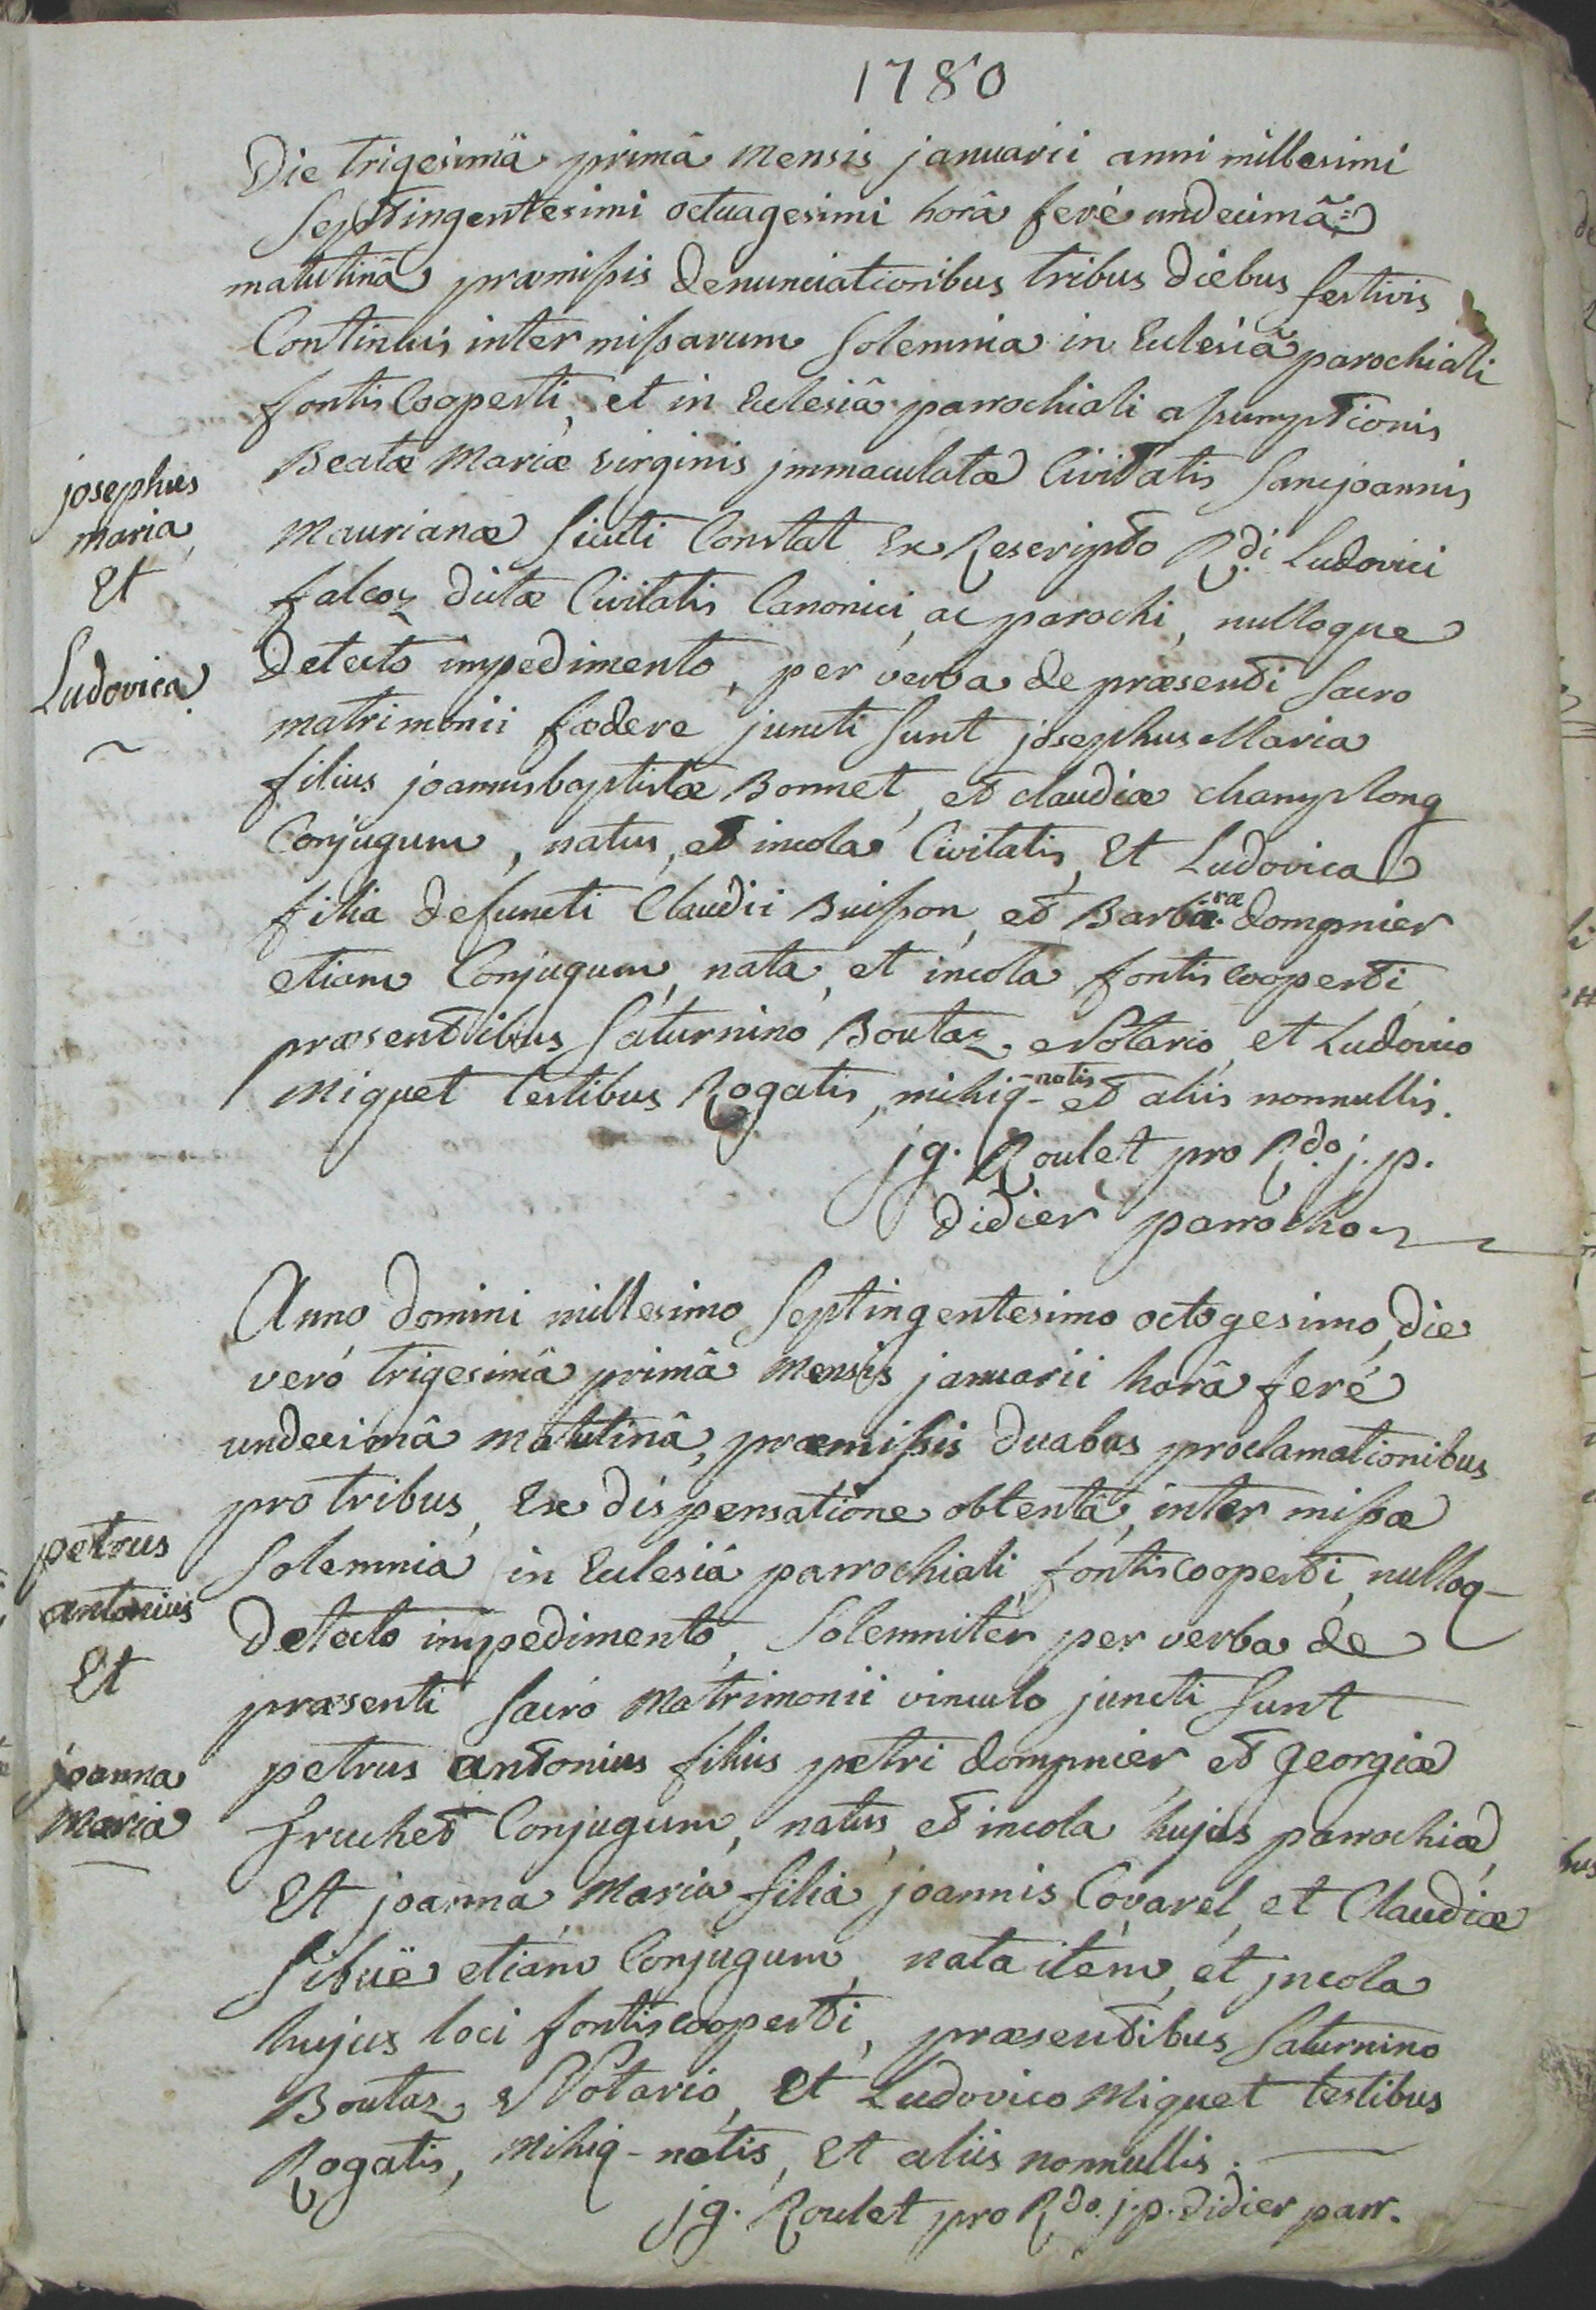 1780
Die trigesimâ primâ mensis januarii anni millesimi
septingentesimi octuagesimi horâ feré undecimâ
matutinâ præmissis denunciationibus tribus diebus festivis
continuis inter missarum solemnia in Eclesiâ parochiali
fontiscooperti, et in Eclesiâ parrochiali assumptionis
Beatæ Mariæ virginis jmmaculatæ Civitatis Sancjoannis
josephus
maria
Et
Ludovica
Maurianæ sicuti Constat Ex Rescripto Rdi Ludovici
falcoz dictæ Civitatis Canonici, ac parochi, nulloque
detecto impedimento, per verba de præsenti sacro
matrimonii fœdere juncti sunt josephus Maria
filius joannisbaptistæ Bonnet, et claudiæ champlong
Conjugum, natus, et incola Civitatis, Et Ludovica
filia defuncti Claudii Buisson, et Barbaræ dompnier
etiam Conjugum, nata, et incola fontiscooperti
præsentibus Saturnino Boutaz Notario, et Ludovico
Miquet testibus Rogatis, mihiq- notis et aliis nonnullis.
jg. Roulet pro Rdo. j. p.
didier parrocho
Anno domini millesimo septingentesimo octogesimo, die
veró trigesimâ primâ mensis januarii horâ feré
undecimâ matutinâ, præmissis duabus proclamationibus
pro tribus, Ex dispensatione obtentâ, inter missæ
petrus
antonius
Et
joanna
Maria
solemnia in Eclesiâ parrochiali fontiscooperti, nulloq-
detecto impedimento, solemnitér per verba de
præsenti sacro Matrimonii vinculo juncti sunt
petrus antonius filius petri dompnier et Georgiæ
fruchet Conjugum, natus, et incola hujus parrochiæ,
Et joanna Maria filia joannis Covarel, et Claudiæ
Sibuë etiam Conjugum, nata item, et jncola
hujus loci fontiscooperti, præsentibus Saturnino
Boutaz Notario, Et Ludovico Miquet testibus
Rogatis, Mihiq- notis, Et aliis nonnullis.
jg. Roulet pro Rdo. j. p. didier parr.